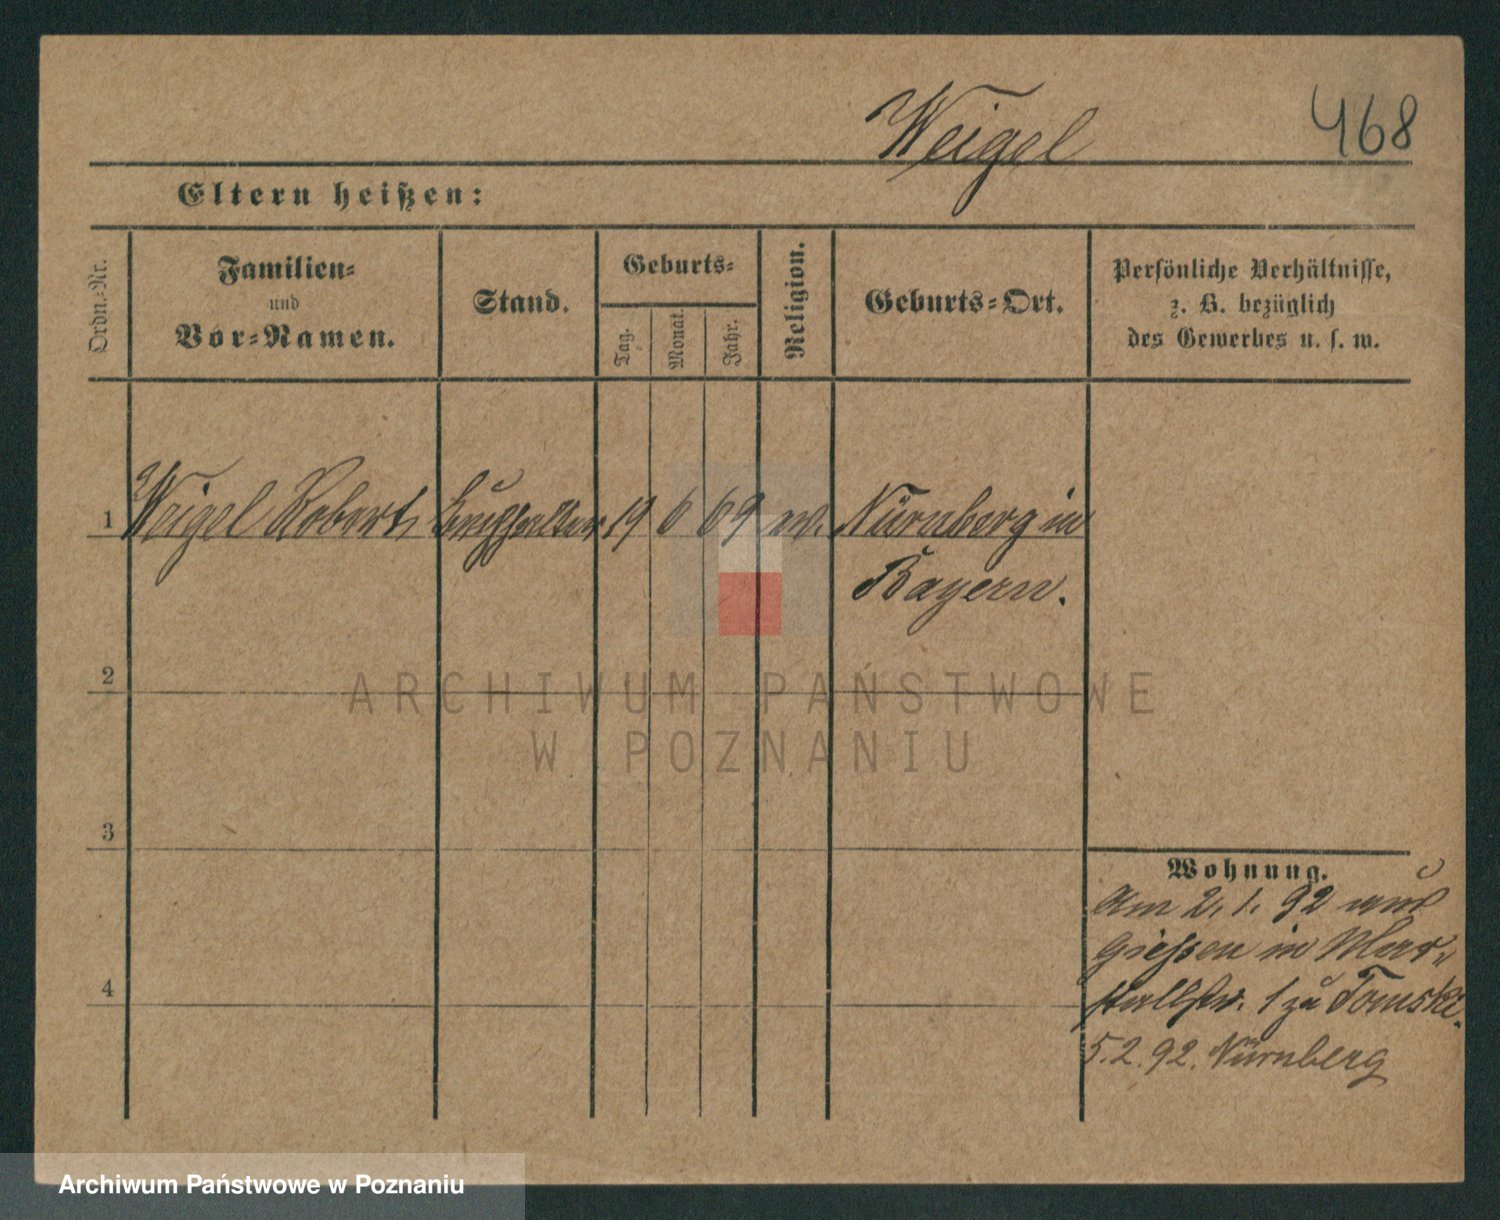 Weigel
468
Eltern heißen:
Ordn.-Nr.
Familien-
und
Vor-Namen.
Stand.
Geburts-
Tag.
Monat.
Jahr.
Religion.
Geburts-Ort.
Persönliche Verhältnisse,
z. B. bezüglich
des Gewerbes u. s. w.
1 Weigel Robert Buchhalter 19 6 69 ev. Nürnberg in
Bayern.
2
3
4
Wohnung.
Am 2. 1. 92 aus
Giessen in Mar-
stallstr. 1 zu Tomski.
5. 2. 92. Nürnberg
ARCHIWUM PAŃSTWOWE
W POZNANIU
Archiwum Państwowe w Poznaniu